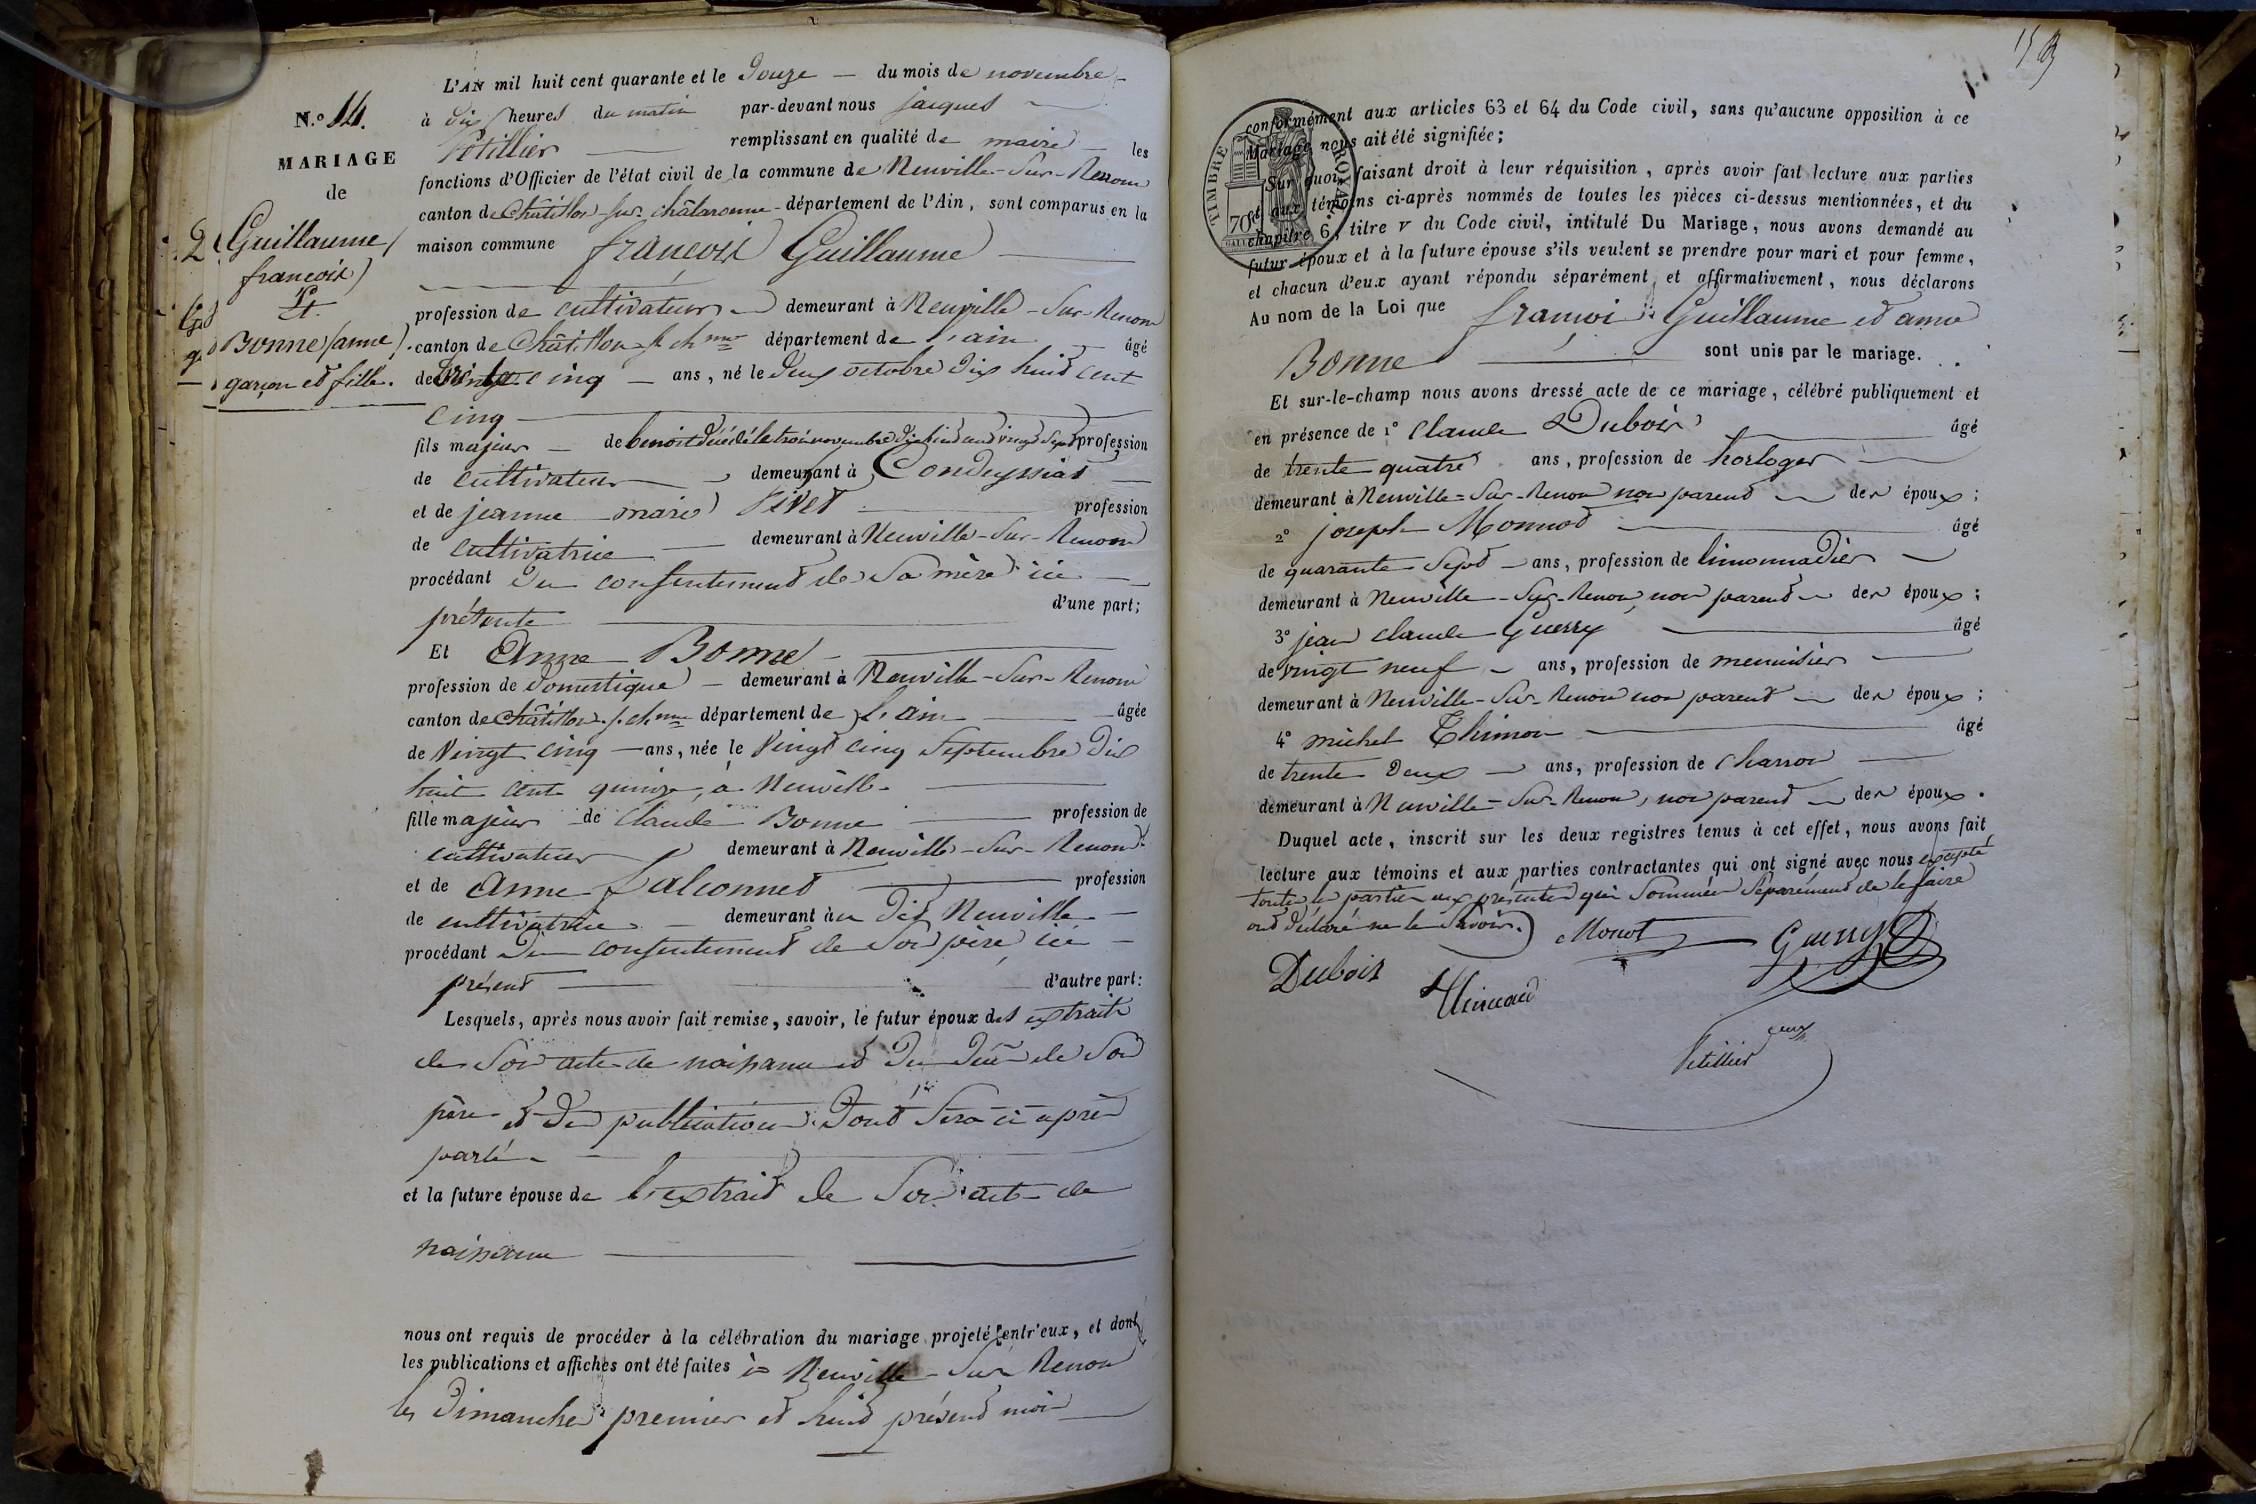 N.º 14.
MARIAGE
de
Guillaume
françois
Et
Bonne anne
garçon et fille.
L'AN mil huit cent quarante et le Douze du mois de novembre
à dix heures du matin par-devant nous jacques
Petillier remplissant en qualité de maire les
fonctions d'Officier de l'état civil de la commune de Neuville-Sur-Renom
canton de Châtillon-sur-châlaronne département de l'Ain, sont comparus en la
maison commune françois Guillaume
profession de cultivateur demeurant à Neuville-Sur-Renom
canton de Châtillon s. ch.nne département de l'ain âgé
de trente cinq ans, né le deux octobre dix huit cent
cinq
fils majeur de benoit décédé le trois novembre dix huit cent vingt sept profession
de cultivateur demeurant à Condeyssiat
et de jeanne marie Pivet profession
de cultivatrice demeurant à Neuville-Sur-Renom
procédant du consentement de Sa mère ici
présente d'une part;
Et Anne Bonne
profession de Domestique demeurant à Neuville-Sur-Renom
canton de Châtillon s. ch.nne département de l'ain âgée
de Vingt cinq ans, née le Vingt cinq Septembre Dix
huit cent quinze, à Neuville
fille majeur de Claude Bonne profession de
cultivateur demeurant à Neuville-Sur-Renom
et de Anne Falconnet profession
de cultivatrice demeurant à u dit Neuville
procédant Du consentement de Son père ici
présent d'autre part:
Lesquels, après nous avoir fait remise, savoir, le futur époux des extraits
de Son acte de naissance et Du Décès de Son
père et De publication Dont Sera ci après
parlé
et la future épouse de l'extrait de Son acte de
naissance
nous ont requis de procéder à la célébration du mariage projeté entr'eux, et dont
les publications et affiches ont été faites à Neuville-Sur Renom
les Dimanches premier et huit présent mois
conformément aux articles 63 et 64 du Code civil, sans qu'aucune opposition à ce
Mariage nous ait été signifiée;
TIMBRE ROYAL
70
Sur quoi, faisant droit à leur réquisition, après avoir fait lecture aux parties
et aux témoins ci-après nommés de toutes les pièces ci-dessus mentionnées, et du
chapitre 6, titre V du Code civil, intitulé Du Mariage, nous avons demandé au
futur époux et à la future épouse s'ils veulent se prendre pour mari et pour femme,
et chacun d'eux ayant répondu séparément et affirmativement, nous déclarons
Au nom de la Loi que françois Guillaume et anne
Bonne sont unis par le mariage.
Et sur-le-champ nous avons dressé acte de ce mariage, célébré publiquement et
en présence de 1º Claude Dubois âgé
de trente quatre ans, profession de horloger
demeurant à Neuville-Sur-Renom non parent des époux;
2º joseph Monnod âgé
de quarante Sept ans, profession de limonnadier
demeurant à Neuville-Sur-Renom, non parent des époux;
3º jean claude Guerry âgé
de vingt neuf ans, profession de menuisier
demeurant à Neuville-Sur-Renom non parent des époux;
4º michel Thimon âgé
de trente Deux ans, profession de Charron
demeurant à Neuville-Sur-Renom, non parent des époux.
Duquel acte, inscrit sur les deux registres tenus à cet effet, nous avons fait
lecture aux témoins et aux parties contractantes qui ont signé avec nous excepté
toutes les parties aux présentes qui Sommées Séparément de le faire
ont déclaré ne le Savoir.
Monot
Guerry
Dubois
Petillier